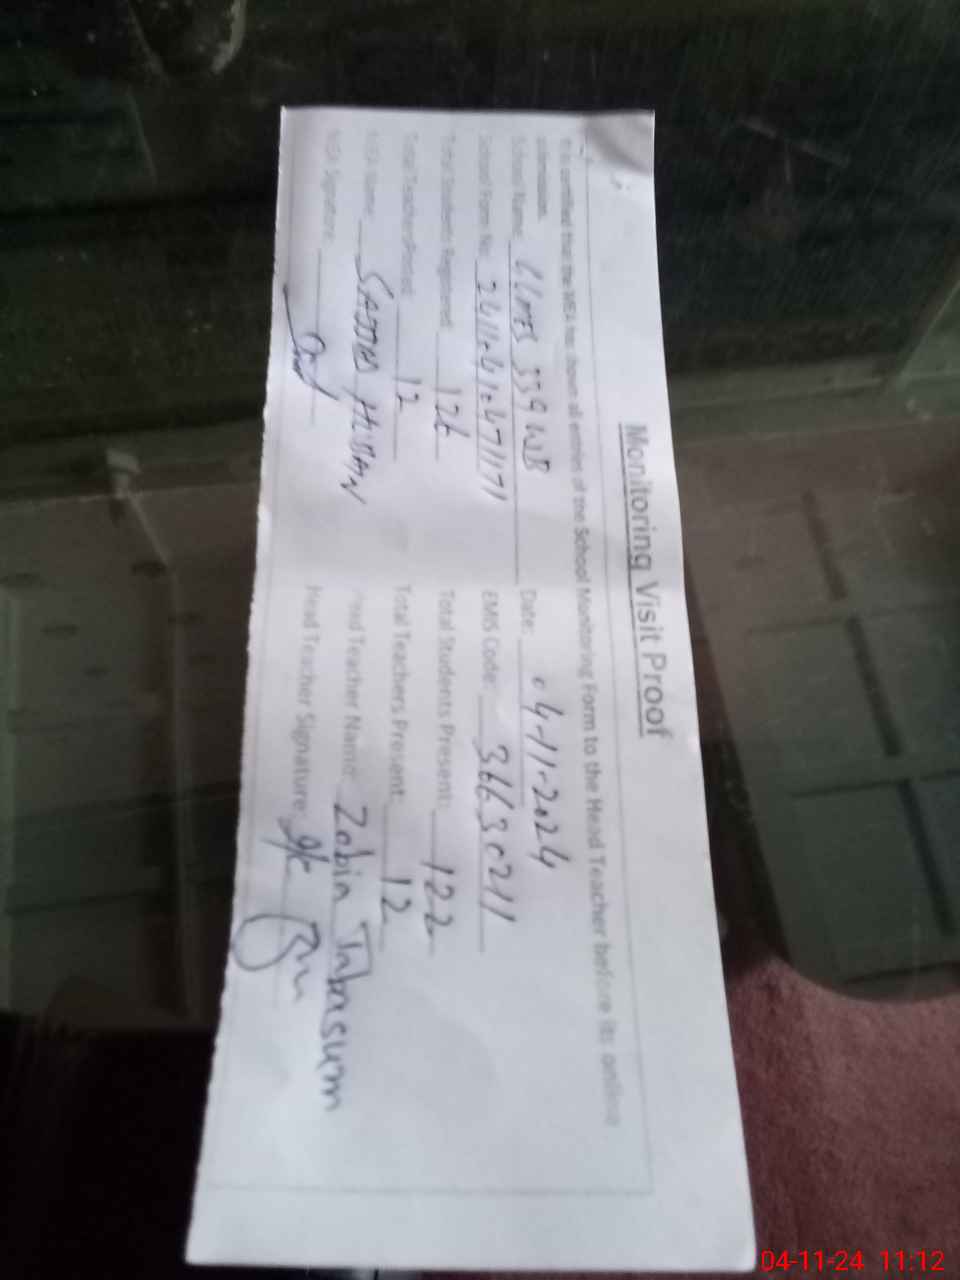 Monitoring Visit Proof
It is certified that the MEA has shown all entries of the School Monitoring Form to the Head Teacher before its online
submission.
School Name: GGMES 339 WB Date: 04-11-2024
School Form No: EMIS Code: 36630211
Total Students Registered: 126 Total Students Present: 122
Total Teachers Posted: 12 Total Teachers Present: 12
MEA Name: SAJJAD HUSSAIN Head Teacher Name: Zobia Tabasum
MEA Signature: Head Teacher Signature:
04-11-24 11:12